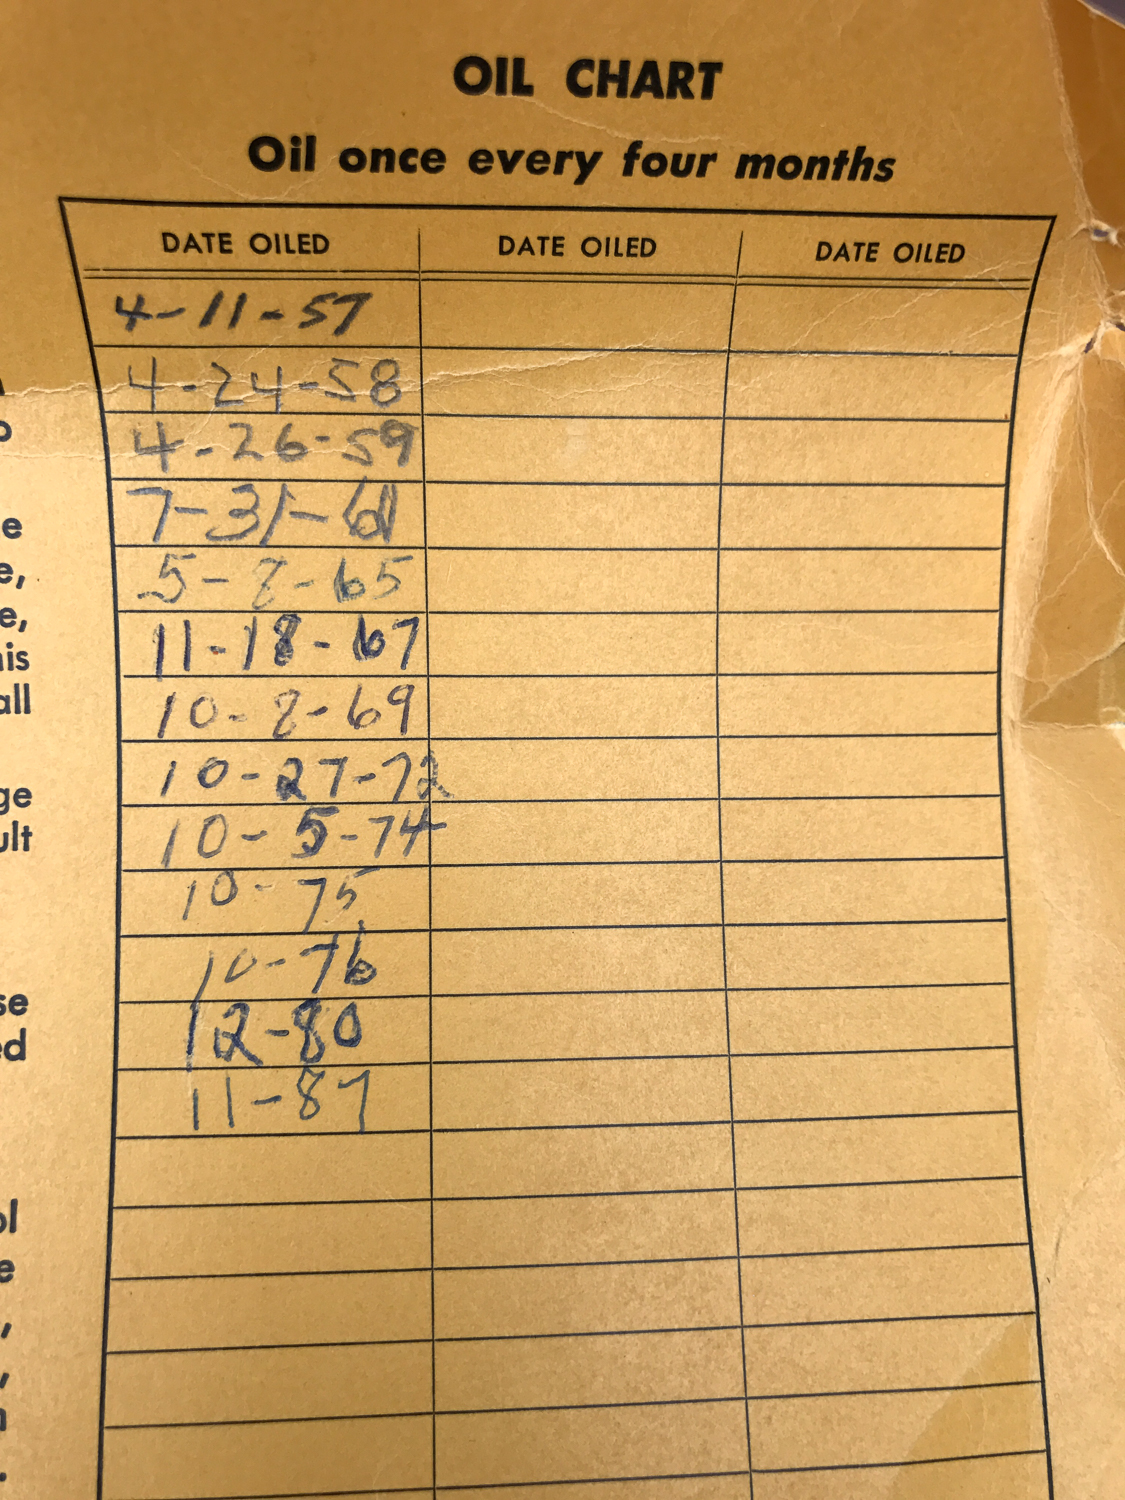 OIL CHART
Oil once every four months
DATE OILED DATE OILED DATE OILED
4-11-57
4-24-58
4-26-59
7-31-61
5-8-65
11-18-67
10-8-69
10-27-72
10-5-74
10-75
10-76
12-80
11-87
e
e,
e,
is
all
ge
ult
se
ed
ol
e
,
,
.